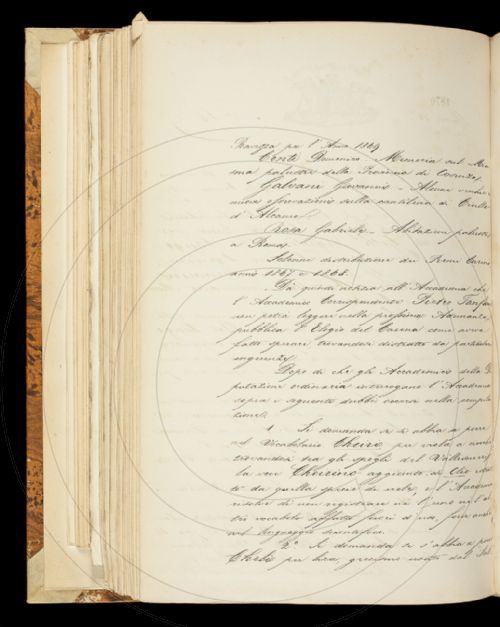 Ravezza per l'Anno 1869
Conti Domenico - Memoria sul
palustre della Provincia di Cosenza,
Galvani Giovanni - Alcune
osservazioni sulla cantilena di Ciullo
d'Alcamo.
Rosa Gabriele - Abitazioni palustri
a Roma.
Solenne distribuzione dei Premi
anni 1867 e 1868.
Dà quindi notizia all'Accademia che
l'Accademico Corrispondente Pietro
non potrà leggere nella prossima Adunanza
pubblica l'Elogio del come aveva
fatto sperare, trovandosi distratto da particolari
urgenze.
Dopo di che gli Accademici della
putazione ordinaria interrogano l'Accademia
sopra i seguenti dubbi occorsi nella compila
zione.
1. Si domanda se si abbia a porre
nel Vocabolario Cheiro, per viola, e
trovandosi tra gli spogli del
la voce Cheirino aggiunto di Olio
to da quella specie di viole, e l'Accademia
risolve di non registrare nè l'uno nè l'al
tro vocabolo affatto fuori d'uso, fuorché
nel linguaggio scientifico.
2.° Si domanda se s'abbia a porre
Cheli per lira, grecismo usato dal